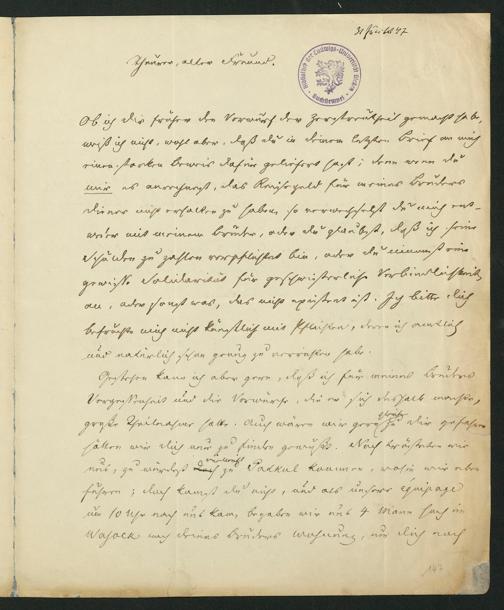 31 Juli 47
Theurer, alter Freund.
Ob ich dir früher den Vorwurf der Zerstreutheit gemacht habe,
weiß ich nicht, wohl aber, daß du in deinem letzten Brief an mich
einen starken Beweis dafür geliefert hast; denn wenn du
mir es das Reisegeld für meines Bruders
Diener nicht erhalten zu haben, so verwechselst du mich ent-
weder mit meinem Bruder, oder du glaubst, daß ich seine
Schulden zu zahlen verpflichtet bin, oder du nimmst eine
gewisse Solidarität für geschwisterliche Verbindlichkeit
an, oder sonst was, das nicht existent ist. Ich bitte dich
mich nicht künstlich mit Pflichten, deren ich amtlich
und natürlich schon genug zu verrichten habe.
Gestehen kann ich aber gern, daß ich für meines Bruders
Vergessenheit und die Vorwürfe, die er sich deshalb machte,
große Theilnahme hatte. Auch wären wir gern zu dir gefahren
hätten wir dich nur zu finden gewußt. Noch trösteten wir
uns, du würdest vielleicht zu kommen, wohin wir eben
fuhren; doch kamst du nicht, und als unsere équipage
um 10 Uhr nach uns kam, begaben wir uns 4 Mann hoch im
nach deines Bruders Wohnung, um dich noch